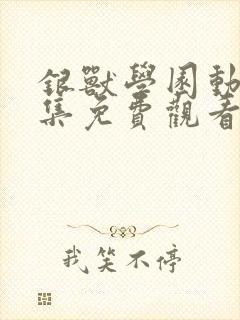 銀獸學園動
集免費觀看
我笑不停